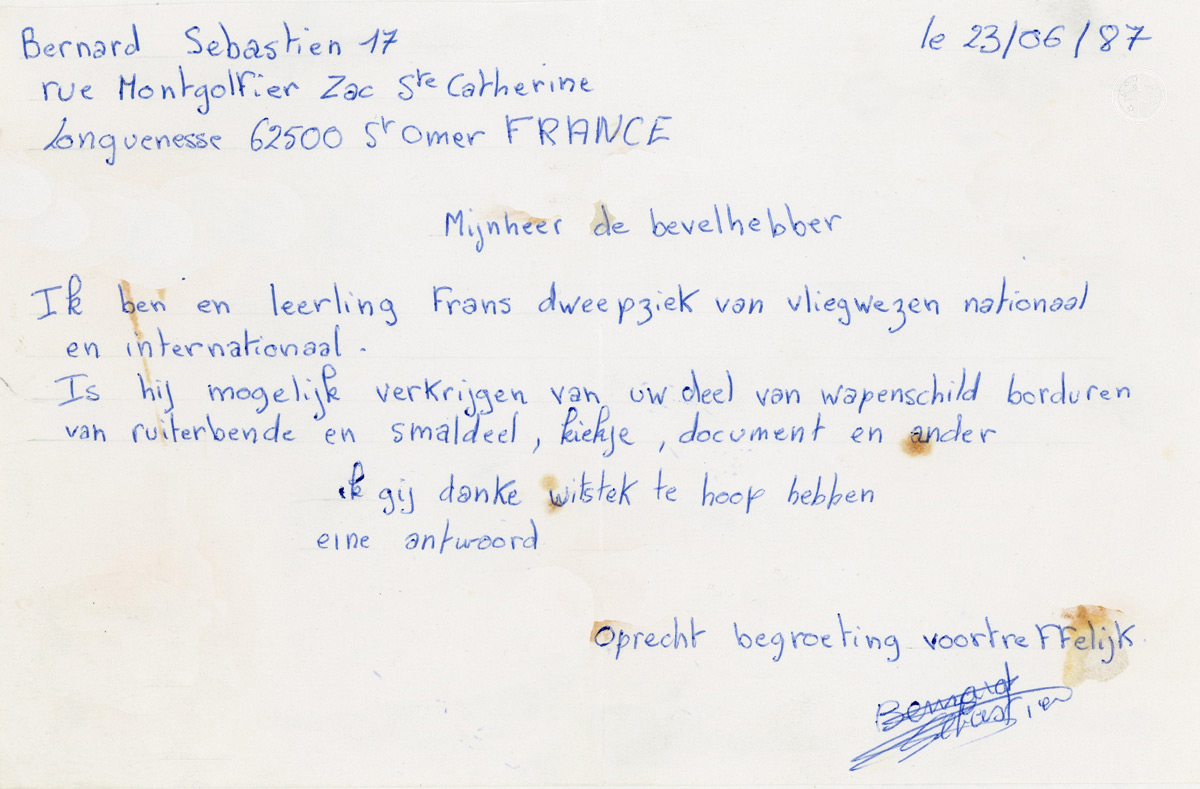 Bernard Sebastien 17
le 23/06/87
rue Montgolfier Zac Ste Catherine
Longuenesse 62500 St Omer FRANCE
Mijnheer de bevelhebber
Ik ben en leerling Frans dweepziek van vliegwezen nationaal
en internationaal.
Is hij mogelijk verkrijgen van uw deel van wapenschild borduren
van ruiterbende en smaldeel, kiekje, document en ander
ik gij danke uitstek te hoop hebben
eine antwoord
Oprecht begroeting voortreffelijk.
Bernard
Sebastien